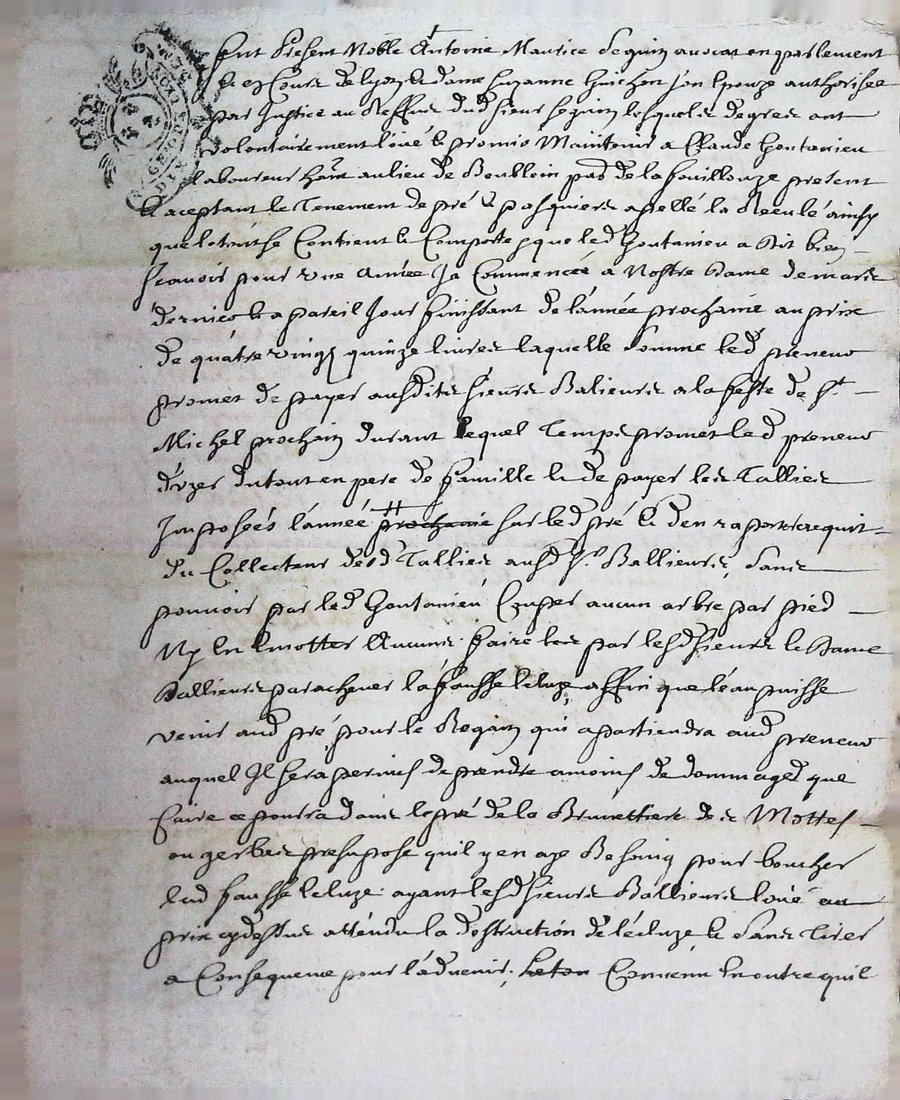 furt Présent Noble Antoine Maurice Seguin avocat en parlement
& ez Cours de lyon & dame Suzanne Guichon son Epouze authorisée
par Justice au Reffus dud sieur Seguin lesquels de grée ont
volontairement loüé & promis Maintenir a Claude Goutanieu
laboureur hant au lieu de Boublein pad de la fouillouze présent
& aceptant le Tenement de pré & pasquiers apellé la Reculé ainsy
que le tout se Contient & Comporte & que led Goutanieu a dit bien
sçavoir pour une année Ja Commencée a Nostre Dame de mars
dernier & a pareil Jour finissant de l'année prochaine au prix
de quatre vingt quinze livres laquelle somme led preneur
promet de payer ausdits sieurs Balieurs a la feste de St
Michel prochain durant lequel Temps promet led preneur
d'uzer du tout en pere de famille & de payer les Tallies
Imposées l'année prochaine sur led pré & d'en raporter quit
du Collecteur desd Tallies ausd Srs Ballieurs, sans
pouvoir par led Goutanieu Couper aucun arbre par pied
Ny En Emotter Aucuns faire par lesd sieurs & Dame
Ballieurs parachever la fausse Cluze, affin que l'eau puisse
venir aud pré, pour le Regain qui apartiendra aud preneur
auquel Il sera permis de prendre a moins de dommages que
faire ce pourra dans le pré de la Brunettiere des Mottes
ou gerbes présuposé quil y en aye Besoing pour boucher
lad fausse Ecluze ayant lesd sieurs Ballieurs loüé au
prix cydessus attendu la destruction de l'écluze & sans Tirer
a Consequence pour l'advenir, Convenu En outre quil